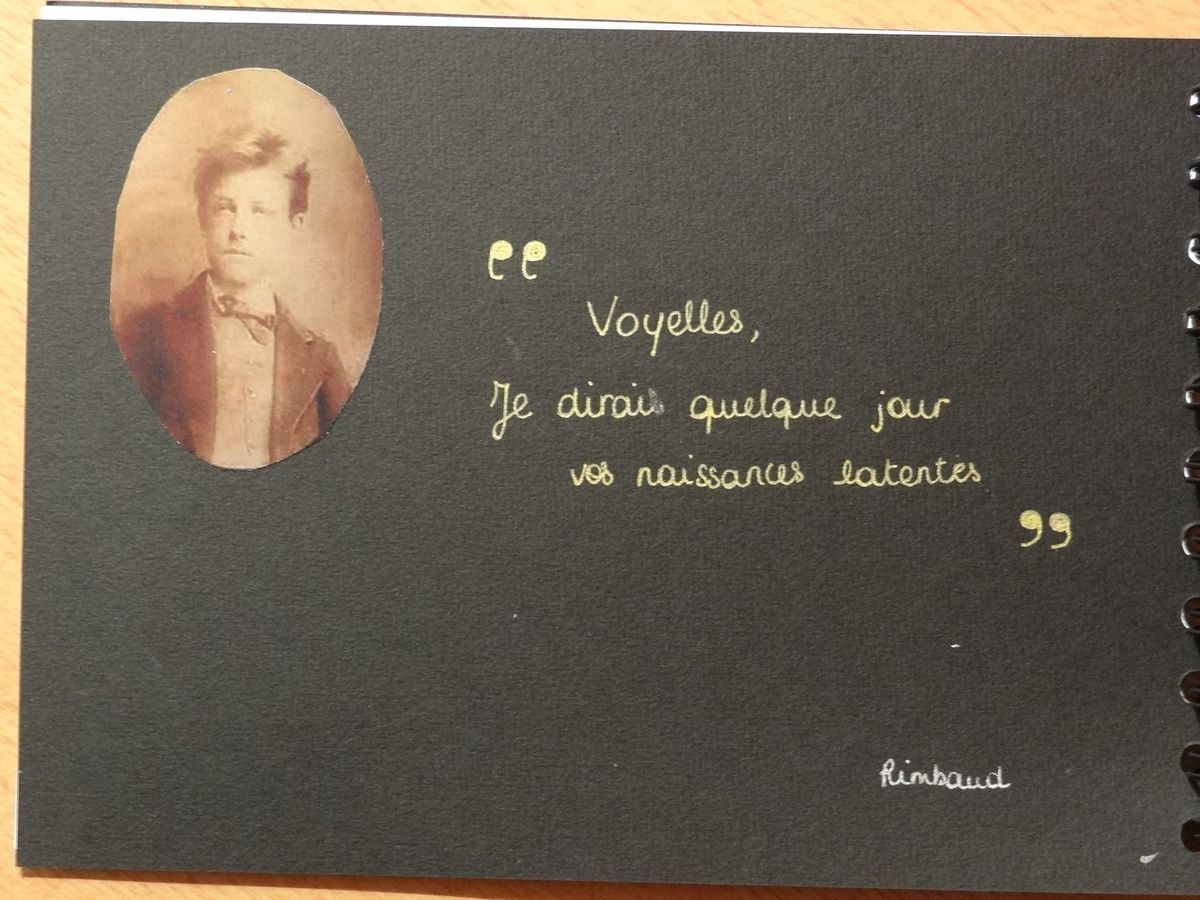 “
Voyelles,
Je dirai quelque jour
vos naissances latentes
”
Rimbaud